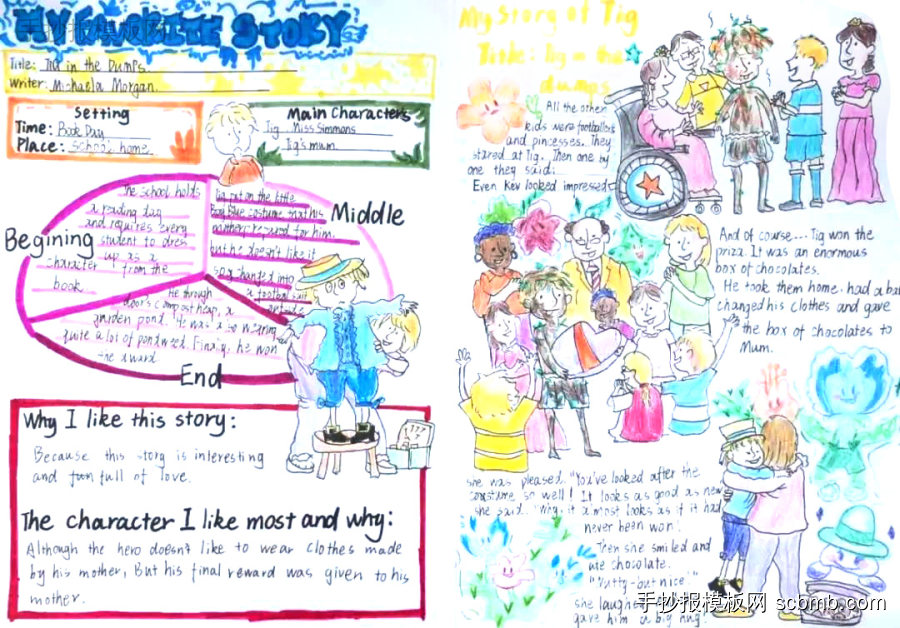 MY FAVORITE STORY
手抄报模板网
Title: Tig in the Dumps.
Writer: Michaela Morgan.
Setting
Time: Book Day
Place: School home.
Main Characters
Tig Miss Simmons
Tig's mum
Begining
The school holds
a reading day
and requires every
student to dress
up as a
character from the
book
Middle
Tig put on the little
boy blue costume that his
mother prepared for him.
but he doesn't like it
so changed into
a football suit
outside
End
He through
door's compost heap, a
garden pond. He was also wearing
quite a lot of pondweed. Finally, he won
the award
Why I like this story:
Because this story is interesting
and full of love.
The character I like most and why:
Although the hero doesn't like to wear clothes made
by his mother, But his final reward was given to his
mother.
My Story of Tig
Title: Tig in the
dumps
All the other
kids were footballers
and pincesses. They
stared at Tig. Then one by
one they said:
Even Kev looked impressed.
And of course... Tig won the
priza. It was an enormous
box of chocolates.
He took them home, had a bath
changed his clothes and gave
the box of chocolates to
Mum.
she was pleased. "You've looked after the
costume so well! It looks as good as new
she said. "Why, it almost looks as if it had
never been won'
Then she smiled and
ate chocolate.
"Nutty-but nice!"
she laughed
gave him a big hug!
手抄报模板网 scbmb.com